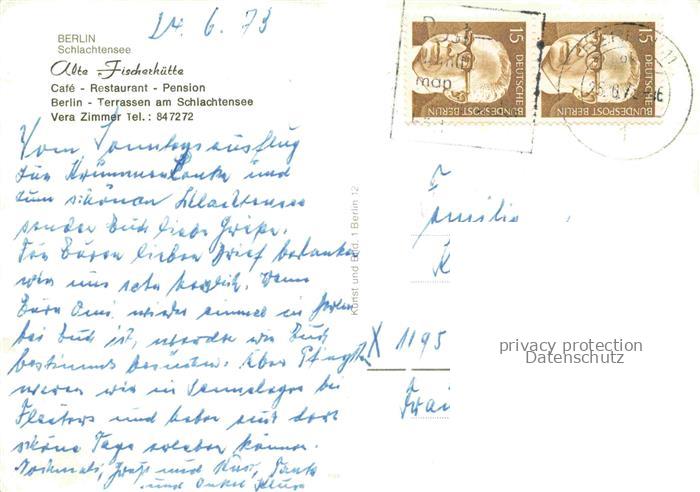 24.6.73
BERLIN
Schlachtensee
Alte Fischerhütte
Café - Restaurant - Pension
Berlin - Terrassen am Schlachtensee
Vera Zimmer Tel.: 847272
Vom Sonntagsausflug
zur Krummen Lanke und
zum schönen Schlachtensee
senden Euch liebe Grüße.
Für Euren lieben Brief bedanken
wir uns sehr herzlich. Wenn
Eure Omi wieder einmal in Berlin
bei Euch ist, werden wir Euch
bestimmt besuchen. Über Pfingsten
waren wir in Sennelager bei
und haben mit dort
schöne Tage erleben können.
Nochmals, Gruß und Kuss, Tante
und Onkel Klaus
Kunst und Bild, 1 Berlin 12
15
DEUTSCHE
BUNDESPOST BERLIN
15
DEUTSCHE
BUNDESPOST BERLIN
Familie
X 1195
privacy protection
Datenschutz